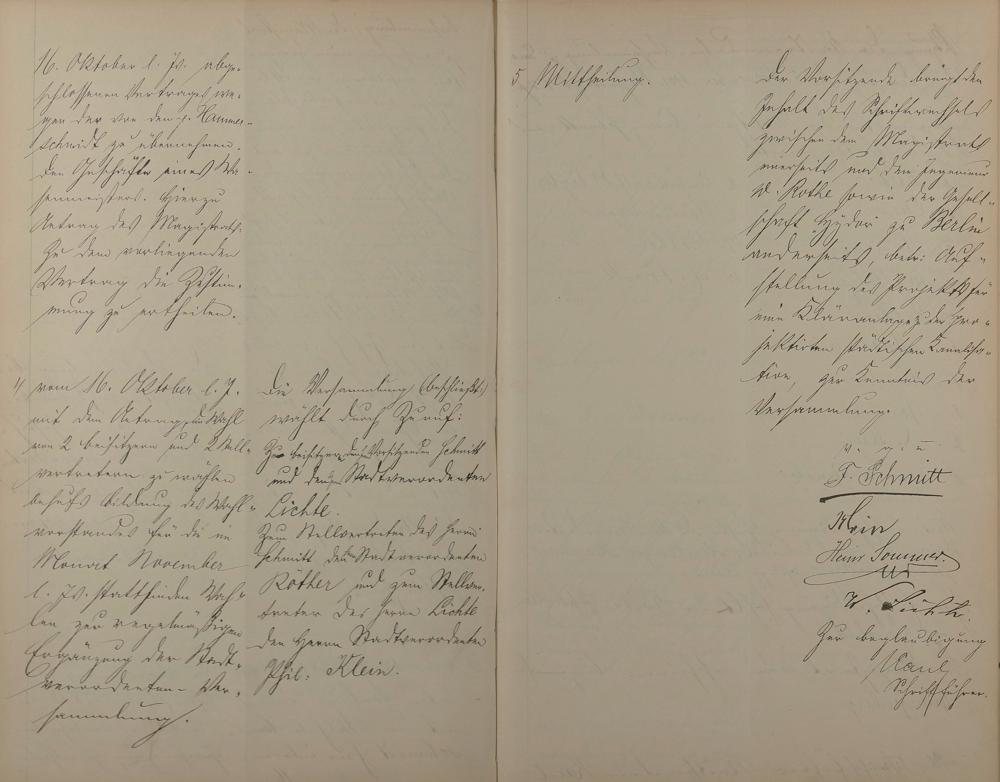 16. Oktober l. Js. abge-
schlossenen Vertrages we-
gen der von dem p. Hammer-
schmidt zu übernehmen-
den Geschäfte eines Wa-
senmeisters. Hierzu
Antrag des Magistrats:
Zu dem vorliegenden
Vertrag die Zustim-
mung zu ertheilen.
4 vom 16. Oktober l. J.
mit dem Antrage, zur Wahl
von 2 Beisitzern und 2 Stell-
vertretern zu wählen
behufs Bildung des Wahl-
vorstandes für die im
Monat November
l. Js. stattfinden Wah-
len zur regelmäßigen
Ergänzung der Stadt-
verordneten-Ver-
sammlung.
Die Versammlung (beschließt)
wählt durch Zuruf:
Zu Beisitzern den Vorsitzenden Schmitt
und den Stadtverordneten
Lichte.
Zum Stellvertreter des Herrn
Schmitt den Stadtverordneten
Köther und zum Stellver-
treter des Herrn Lichte
den Herrn Stadtverordneten
Phil. Klein.
5. Mittheilung.
Der Vorsitzende bringt den
Inhalt des Schriftwechsels
zwischen dem Magistrat
einerseits und dem Ingenieur
W. Rothe sowie der Gesell-
schaft Hydor zu Berlin
anderseits, betr. Auf-
stellung des Projekts für
eine Kläranlage zu der pro-
jektirten städtischen Kanalisa-
tion, zur Kenntnis der
Versammlung.
v. g. u.
F. Schmitt
Klein
Heinr Sommer
W. Lichte.
Zur Beglaubigung
Schriftführer.